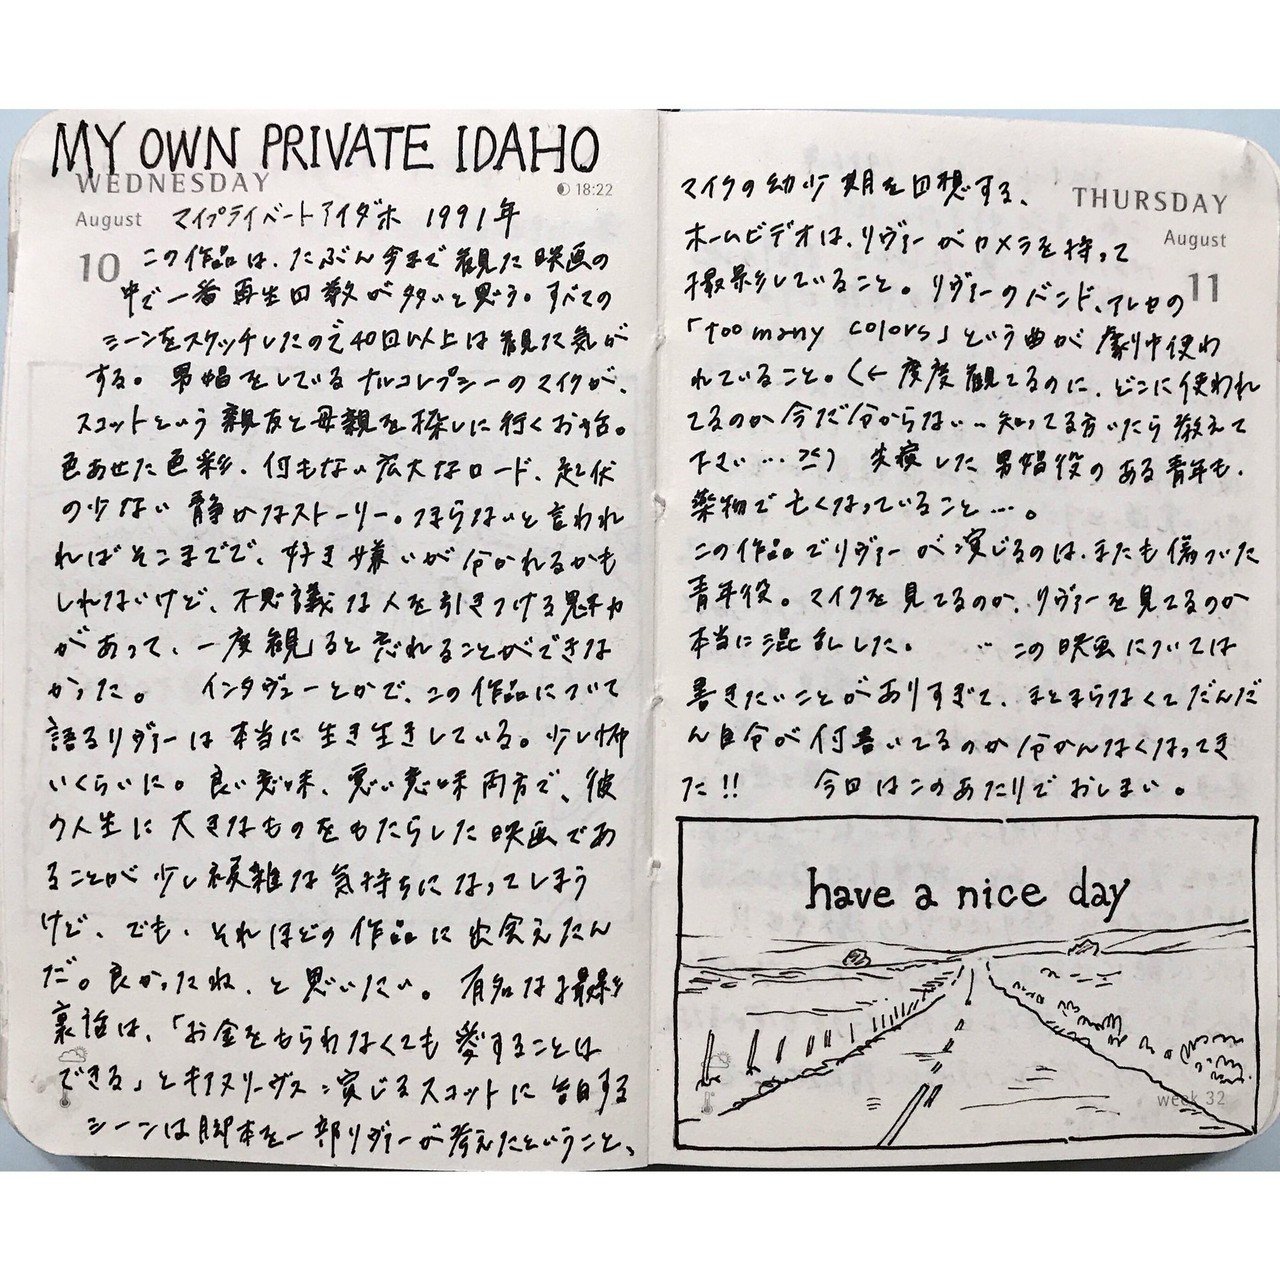 MY OWN PRIVATE IDAHO
WEDNESDAY
18:22
August
マイプライベートアイダホ 1991年
10
この作品は、たぶん今まで観た映画の
中で一番再生回数が多いと思う。すべての
シーンをスケッチしたので40回以上は観た気が
する。男娼をしているナルコレプシーのマイクが、
スコットという親友と母親を探しに行くお話。
色あせた色彩、何もない広大なロード、起伏
の少ない静かなストーリー。つまらないと言われ
ればそこまでで、好き嫌いが分かれるかも
しれないけど、不思議な人を引きつける魅力
があって、一度観ると忘れることができな
かった。 インタヴューとかで、この作品について
語るリヴァーは本当に生き生きしている。少し怖
いくらいに。良い意味、悪い意味両方で、彼
の人生に大きなものをもたらした映画であ
ることが少し複雑な気持ちになってしまう
けど、でも、それほどの作品に出会えたん
だ。良かったね、と思いたい。 有名な撮影
裏話は、「お金をもらわなくても愛することは
できる」とキアヌリーヴス演じるスコットに告白する
シーンは脚本を一部リヴァーが考えたということ、
THURSDAY
August
11
マイクの幼少期を回想する、
ホームビデオは、リヴァーがカメラを持って
撮影していること。リヴァーのバンド、アレカの
「too many colors」という曲が劇中使わ
れていること。(←度度観てるのに、どこに使われ
てるのか今だ分からない…知ってる方いたら教えて
下さい…) 失神した男娼役のある青年も、
薬物で亡くなっていること…。
この作品でリヴァーが演じるのは、またも傷ついた
青年役。マイクを見てるのか、リヴァーを見てるのか
本当に混乱した。 … この映画については
書きたいことがありすぎて、まとまらなくてだんだ
ん自分が何書いてるのか分かんなくなってき
た!! 今日はこのあたりでおしまい。
have a nice day
week 32